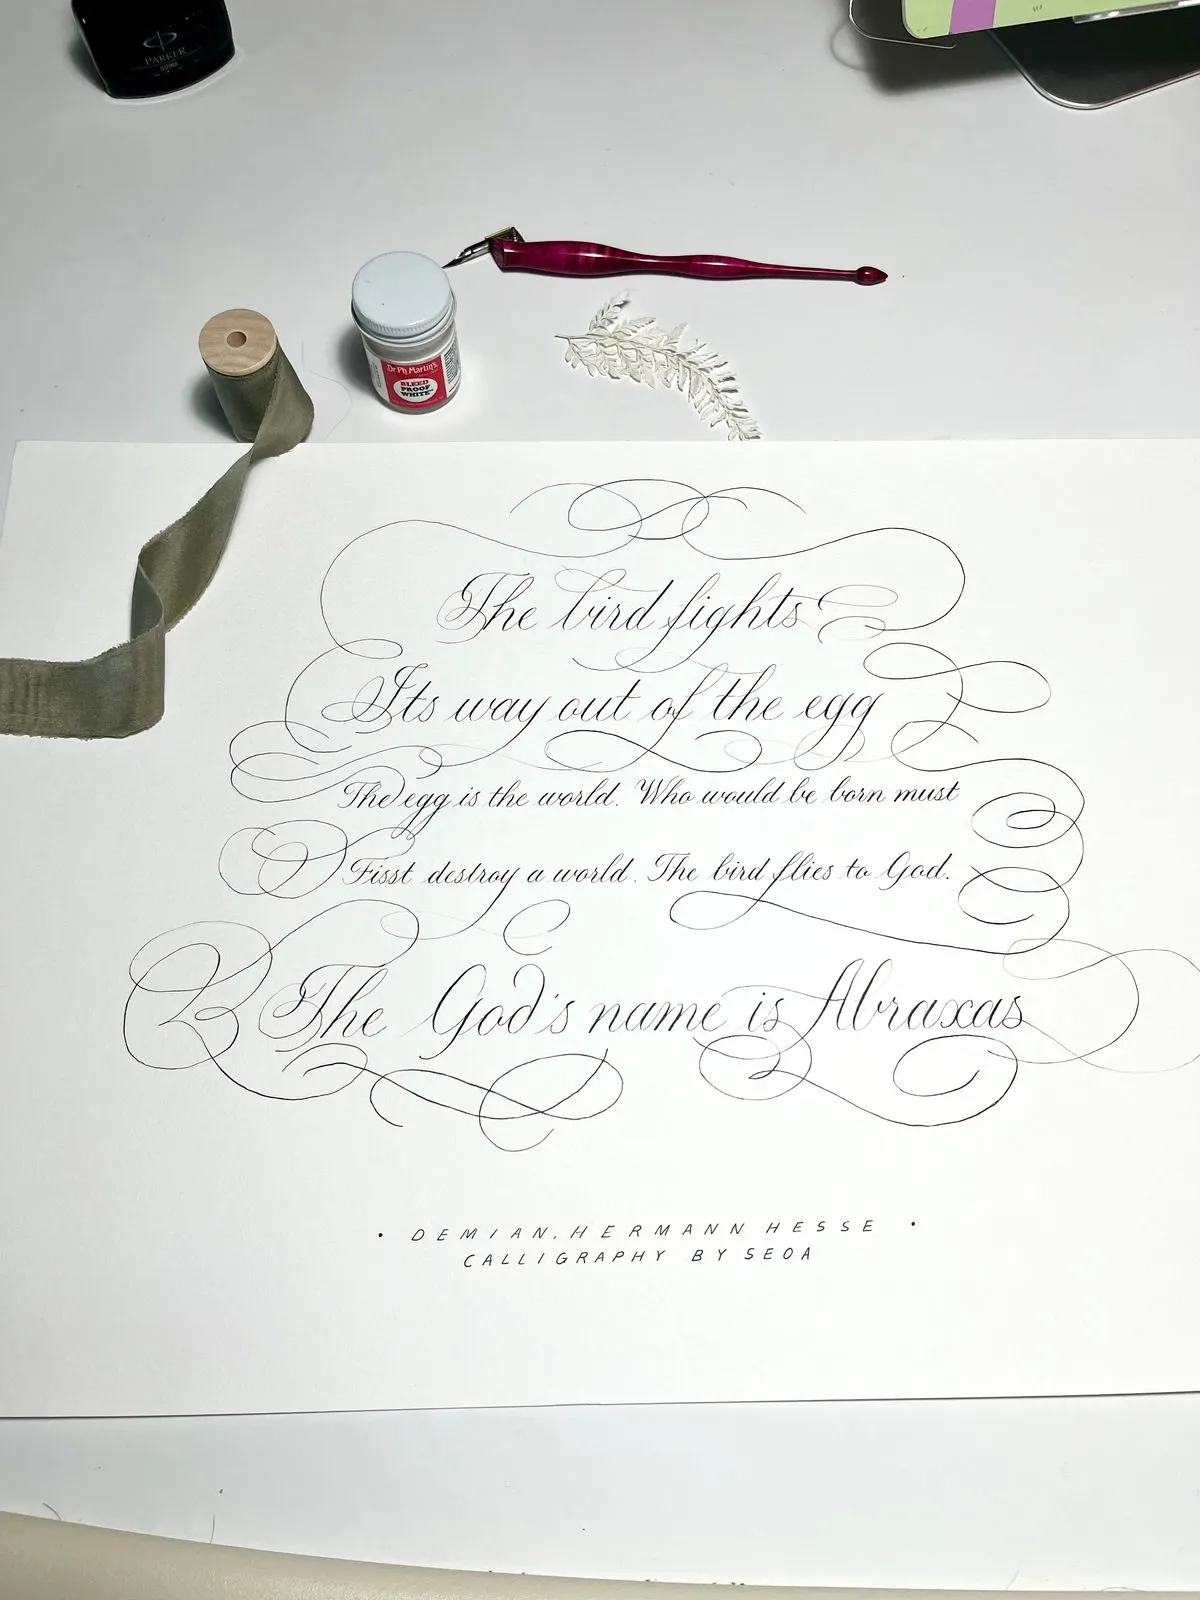 PARKER
QUINK
Dr. Ph. Martin's
BLEED
PROOF
WHITE
The bird fights
Its way out of the egg
The egg is the world. Who would be born must
Fisst destroy a world. The bird flies to God.
The God's name is Abraxas
• DEMIAN. HERMANN HESSE •
CALLIGRAPHY BY SEOA